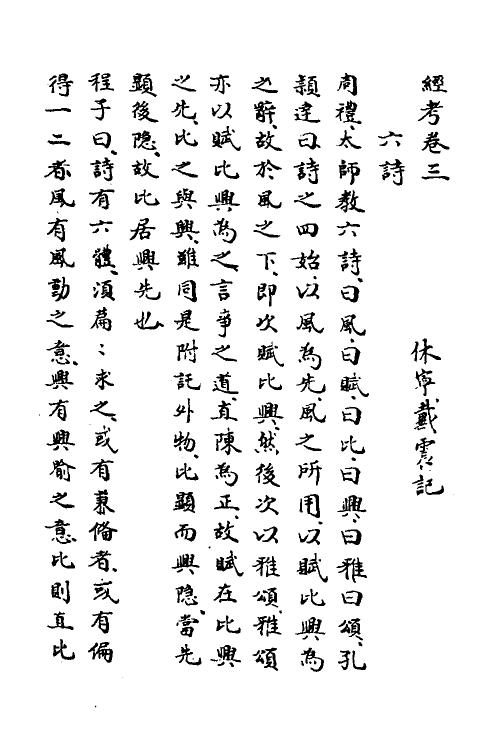 經考卷三
休寧戴震記
六詩
周禮、太師教六詩、曰風、曰賦、曰比、曰興、曰雅曰頌、孔
穎達曰、詩之四始、以風為先、風之所用、以賦比興為
之辭、故於風之下、即次賦比興、然後次以雅頌、雅頌
亦以賦比興為之、言事之道、直陳為正、故賦在比興
之先、比之與興、雖同是附託外物、比顯而興隐、當先
顯後隐、故比居興先也、
程子曰、詩有六體、須篇〻求之、或有兼俻者、或有偏
得一二者、風有風動之意、興有興喻之意、比則直比